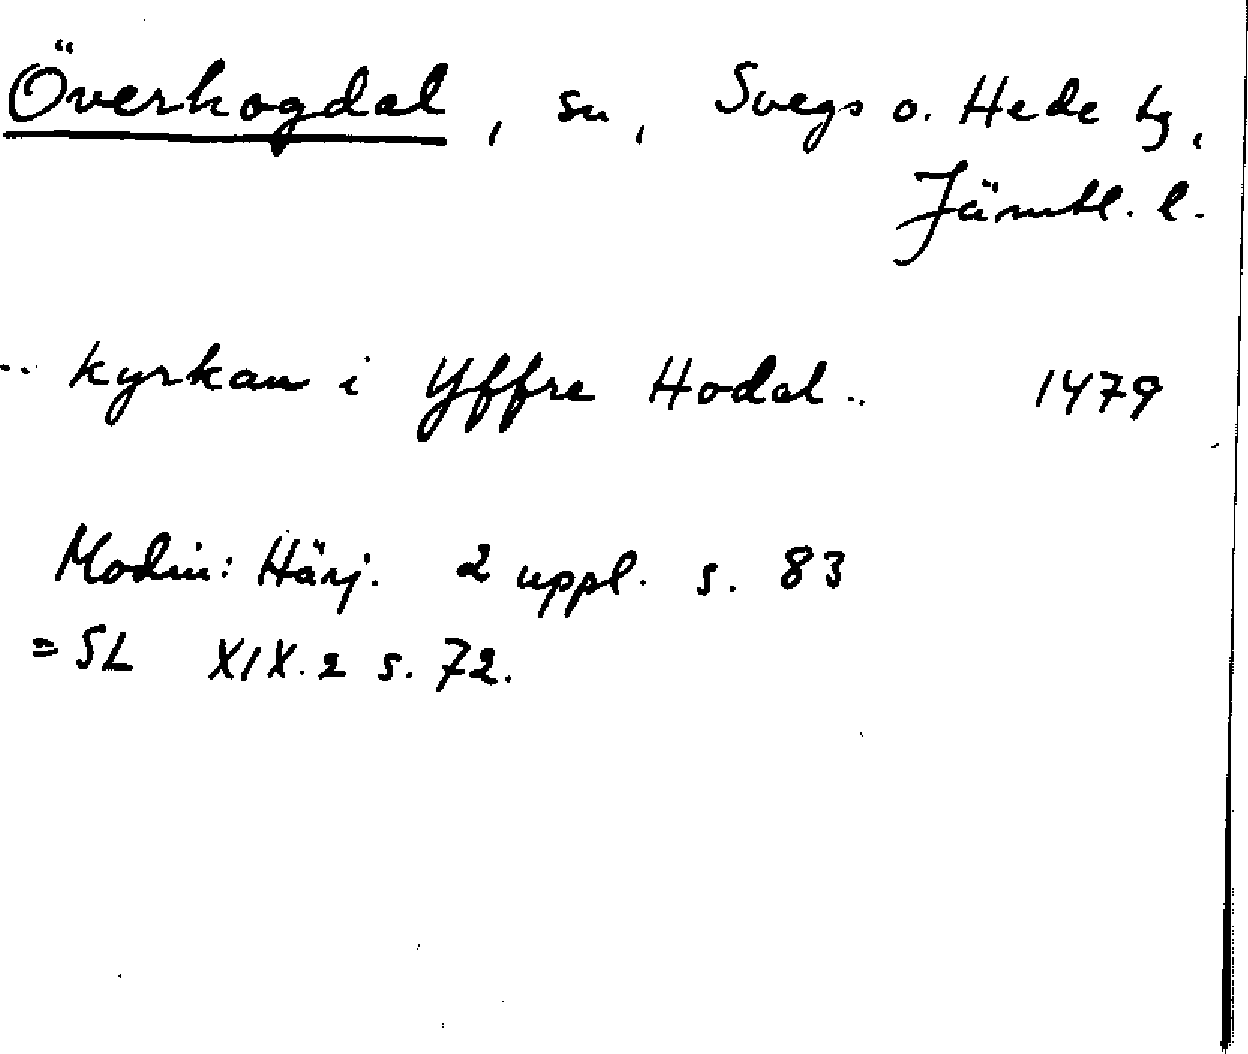 Överhogdal, sn, Svegs o. Hede tg,
Jämtl. l.
.. kyrkan i Yffre Hodal .. 1479
Modin: Härj. 2 uppl. s. 83
= SL XIX.2 s. 72.